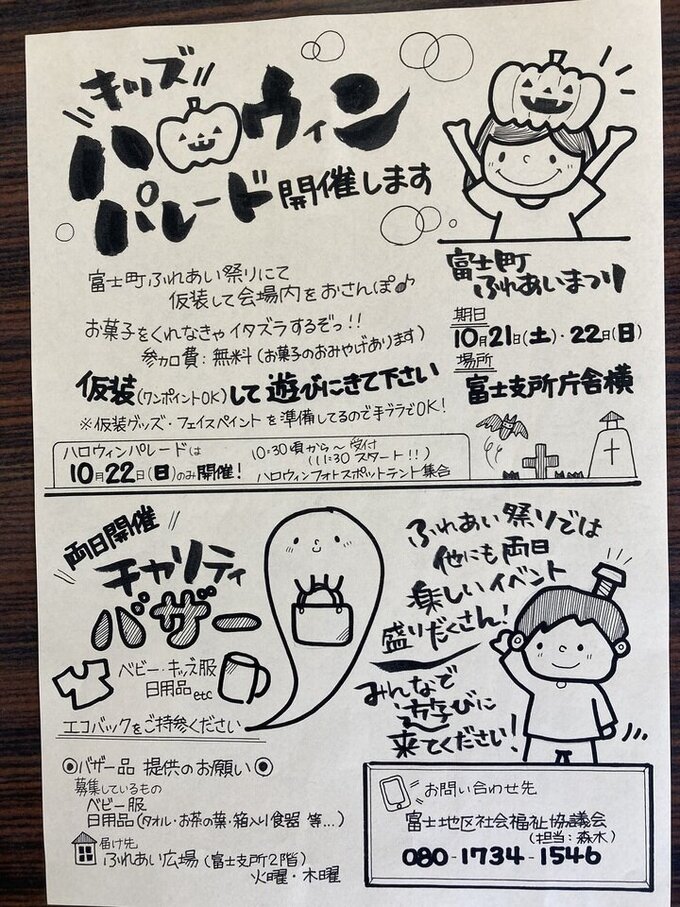 キッズ
ハロウィン
パレード開催します
富士町ふれあい祭りにて
仮装して会場内をおさんぽ♪
お菓子をくれなきゃイタズラするぞっ!!
参加費:無料(お菓子のおみやげあります)
仮装(ワンポイントOK)して遊びにきて下さい
※仮装グッズ・フェイスペイントを準備してるので手ブラでOK!
富士町
ふれあいまつり
期日
10月21日(土)・22日(日)
場所
富士支所庁舎横
ハロウィンパレードは
10月22日(日)のみ開催!
10:30頃から〜受付
(11:30スタート!!)
ハロウィンフォトスポットテント集合
両日開催
チャリティ
バザー
ベビー・キッズ服
日用品etc
エコバックをご持参ください
ふれあい祭りでは
他にも両日
楽しいイベント
盛りだくさん!
みんなで
遊びに
来てください!
◉バザー品 提供のお願い◉
募集しているもの
ベビー服
日用品(タオル・お茶の葉・箱入り食器 等...)
届け先
ふれあい広場(富士支所2階)
火曜・木曜
お問い合わせ先
富士地区社会福祉協議会
(担当:森水)
080-1734-1546